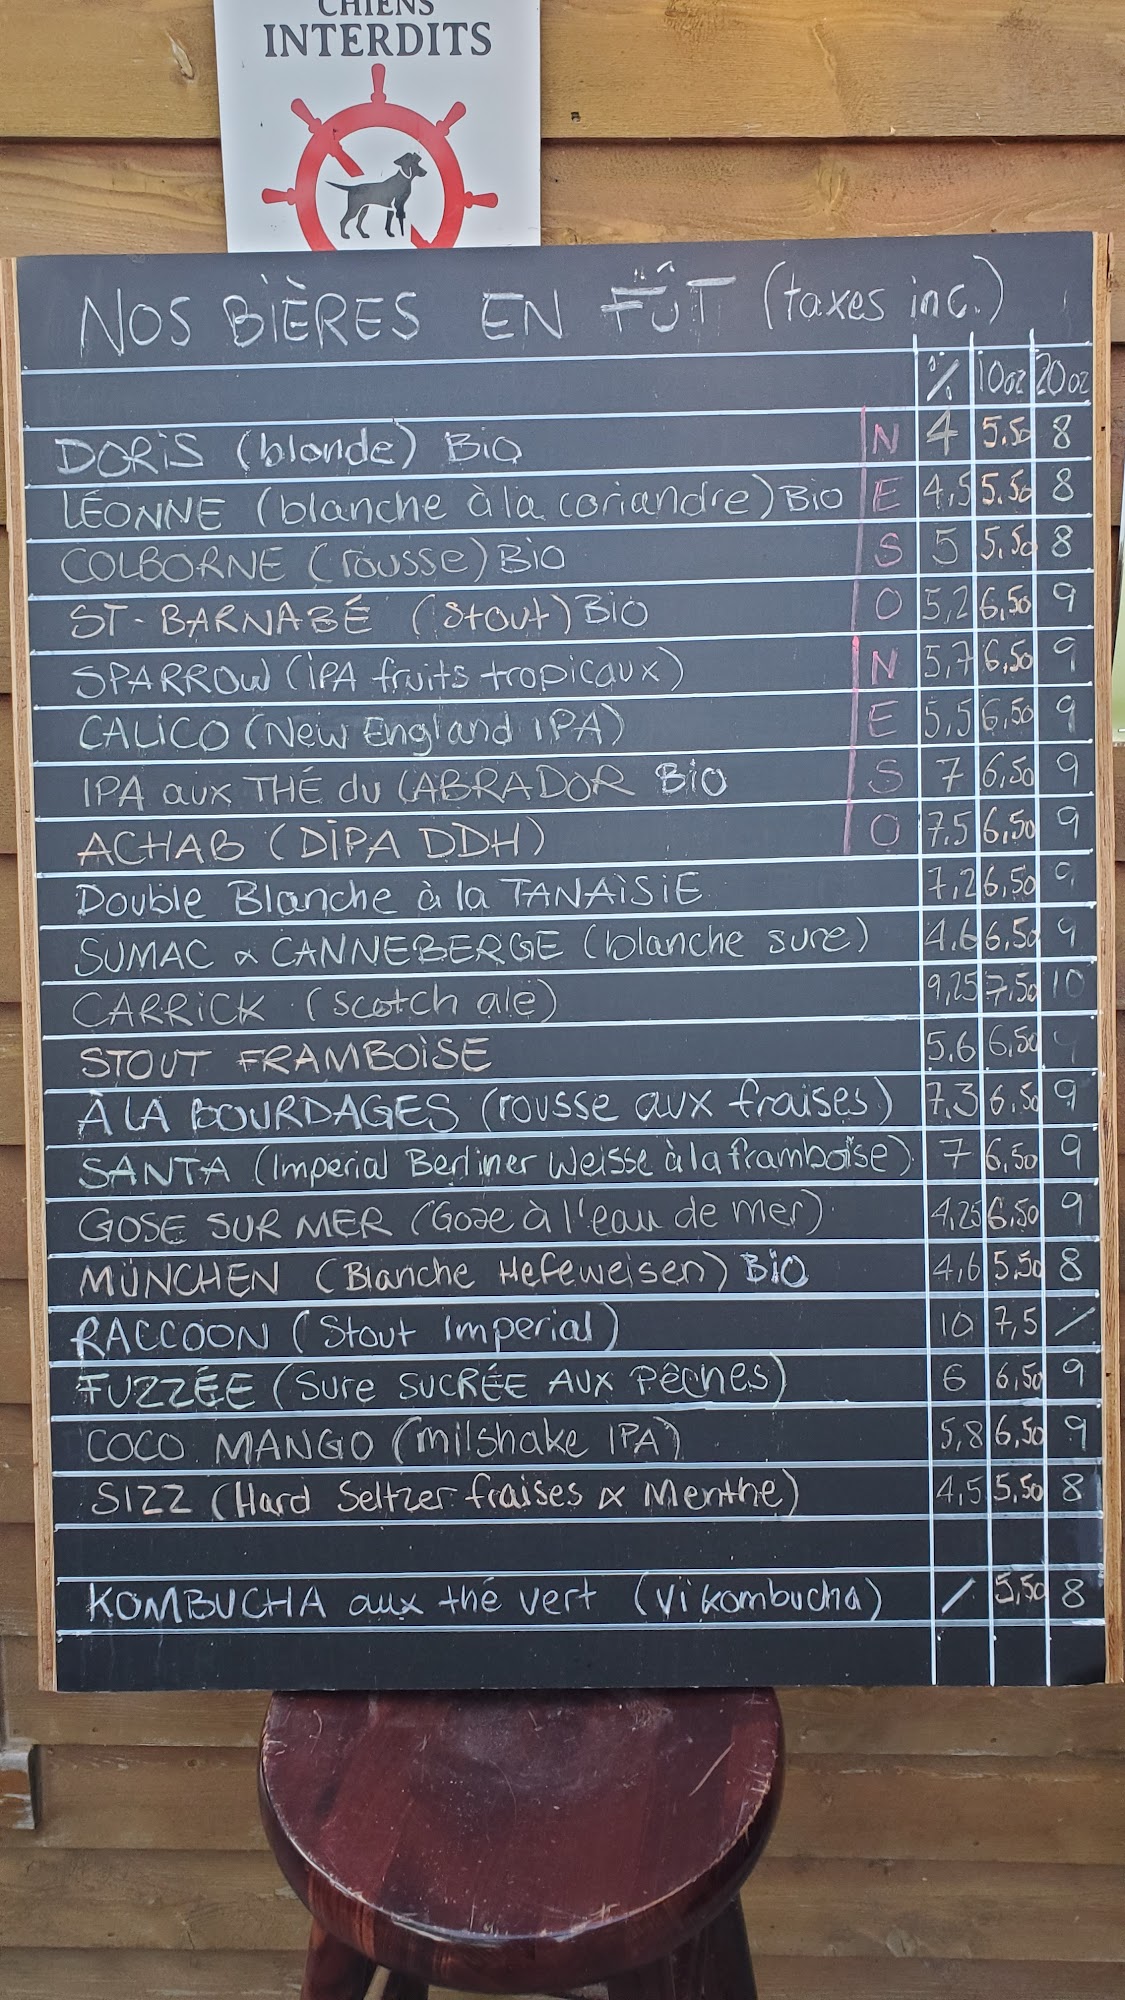 CHIENS
INTERDITS
NOS BIÈRES EN FÛT (taxes inc.)
% 10oz 20oz
DORIS (blonde) Bio N 4 5.50 8
LÉONNE (blanche à la coriandre) Bio E 4,5 5.50 8
COLBORNE (rousse) Bio S 5 5.50 8
ST-BARNABÉ (Stout) Bio O 5,2 6,50 9
SPARROW (iPA fruits tropicaux) N 5,7 6,50 9
CALICO (New England IPA) E 5,5 6,50 9
IPA aux THÉ du LABRADOR Bio S 7 6,50 9
ACHAB (DIPA DDH) O 7,5 6,50 9
Double Blanche à la TANAISIE 7,2 6,50 9
SUMAC & CANNEBERGE (blanche sure) 4.6 6,50 9
CARRICK (Scotch ale) 9,25 7,50 10
STOUT FRAMBOISE 5.6 6,50
À LA BOURDAGES (rousse aux fraises) 7.3 6.50 9
SANTA (Imperial Berliner Weisse à la framboise) 7 6,50 9
GOSE SUR MER (Gose à l'eau de mer) 4,25 6,50 9
MÜNCHEN (Blanche Hefeweisen) Bio 4,6 5,50 8
RACCOON (Stout Imperial) 10 7,5 /
FUZZÉE (Sure SUCRÉE AUX Pêches) 6 6,50 9
COCO MANGO (milshake IPA) 5,8 6,50 9
SIZZ (Hard Seltzer fraises & Menthe) 4,5 5,50 8
KOMBUCHA aux thé vert (Vi kombucha) / 5,50 8